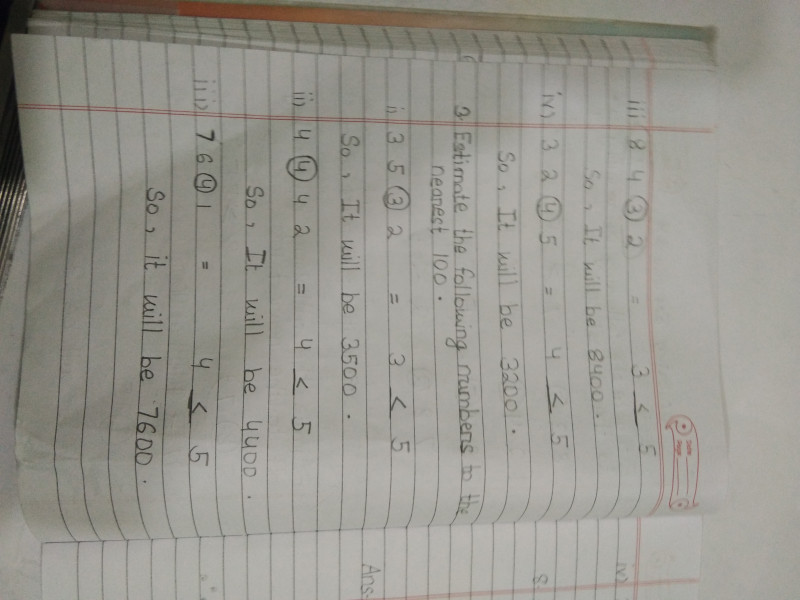 Date
Page
iii) 8 4 3 2 = 3 < 5
So, It will be 8400.
iv) 3 2 4 5 = 4 < 5
So, It will be 3200.
3. Estimate the following numbers to the
nearest 100.
i) 3 5 3 2 = 3 < 5
So, It will be 3500.
ii) 4 4 4 2 = 4 < 5
So, It will be 4400.
iii) 7 6 4 1 = 4 < 5
So, it will be 7600.
iv)
S
Ans.